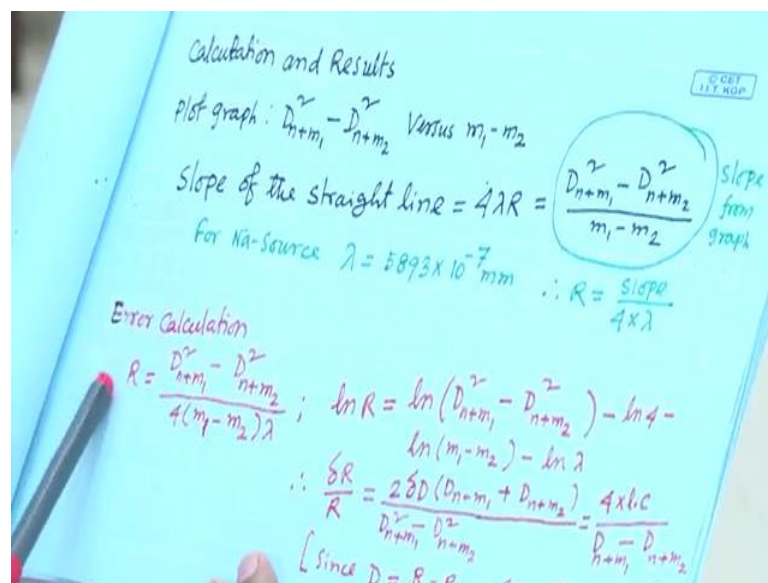 Calculation and Results
© CET
I.I.T. KGP
Plot graph : D²ₙ₊ₘ₁ - D²ₙ₊ₘ₂ Versus m₁-m₂
Slope of the straight line = 4λR = (D²ₙ₊ₘ₁ - D²ₙ₊ₘ₂)/(m₁-m₂) Slope from graph
For Na-Source λ = 5893×10⁻⁷ mm ∴ R = Slope/(4×λ)
Error Calculation
R = (D²ₙ₊ₘ₁ - D²ₙ₊ₘ₂)/(4(m₁-m₂)λ) ; ln R = ln(D²ₙ₊ₘ₁ - D²ₙ₊ₘ₂) - ln 4 -
ln(m₁-m₂) - ln λ
∴ δR/R = 2δD(Dₙ₊ₘ₁ + Dₙ₊ₘ₂)/(D²ₙ₊ₘ₁ - D²ₙ₊ₘ₂) = 4×l.c/(Dₙ₊ₘ₁ - Dₙ₊ₘ₂)
[Since D =